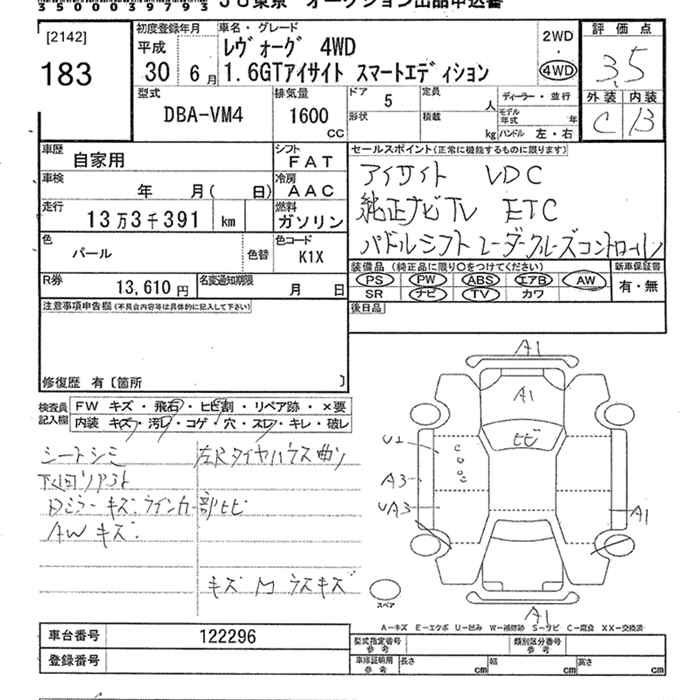 35000039793 JU東京 オークション出品申込書
[2142]
183
初度登録年月
平成
30 年 6 月
車名・グレード
レヴォーグ 4WD
1.6GTアイサイト スマートエディション
2WD
・
4WD
評価点
3.5
外装 内装
C B
型式
DBA-VM4
排気量
1600
CC
ドア
5
形状
定員
人
積載
kg
ディーラー・並行
モデル年式 年
ハンドル 左・右
車歴
自家用
シフト
FAT
車検
年 月( 日)
冷房
AAC
走行
13万3千391 km
燃料
ガソリン
色
パール
色替
色コード
K1X
R券
13,610 円
名変通知期限
月 日
セールスポイント(正常に機能するものに限ります)
アイサイト VDC
純正ナビTV ETC
パドルシフト レーダークルーズコントロール
装備品 (純正品に限り○をつけてください)
PS PW ABS エアB AW
SR ナビ TV カワ
新車保証書
有・無
後日品
注意事項申告欄(不具合内容等は具体的に記入して下さい)
修復歴 有〔箇所 〕
検査員記入欄
FW キズ・飛石・ヒビ割・リペア跡・×要
内装 キズ・汚レ・コゲ・穴・スレ・キレ・破レ
シートシミ
左Rタイヤハウス曲り
キズ ウインカー部ヒビ
AWキズ
キズ M ウスキズ
A1
A1
ヒビ
U1
A3
UA3
A1
A1
スペア
A-キズ E-エクボ U-凹み W-補修跡 S-サビ C-腐食 XX-交換済
車台番号 122296
登録番号
型式指定番号 参考
類別区分番号 参考
車庫証明用 参考
長さ cm
幅 cm
高さ cm